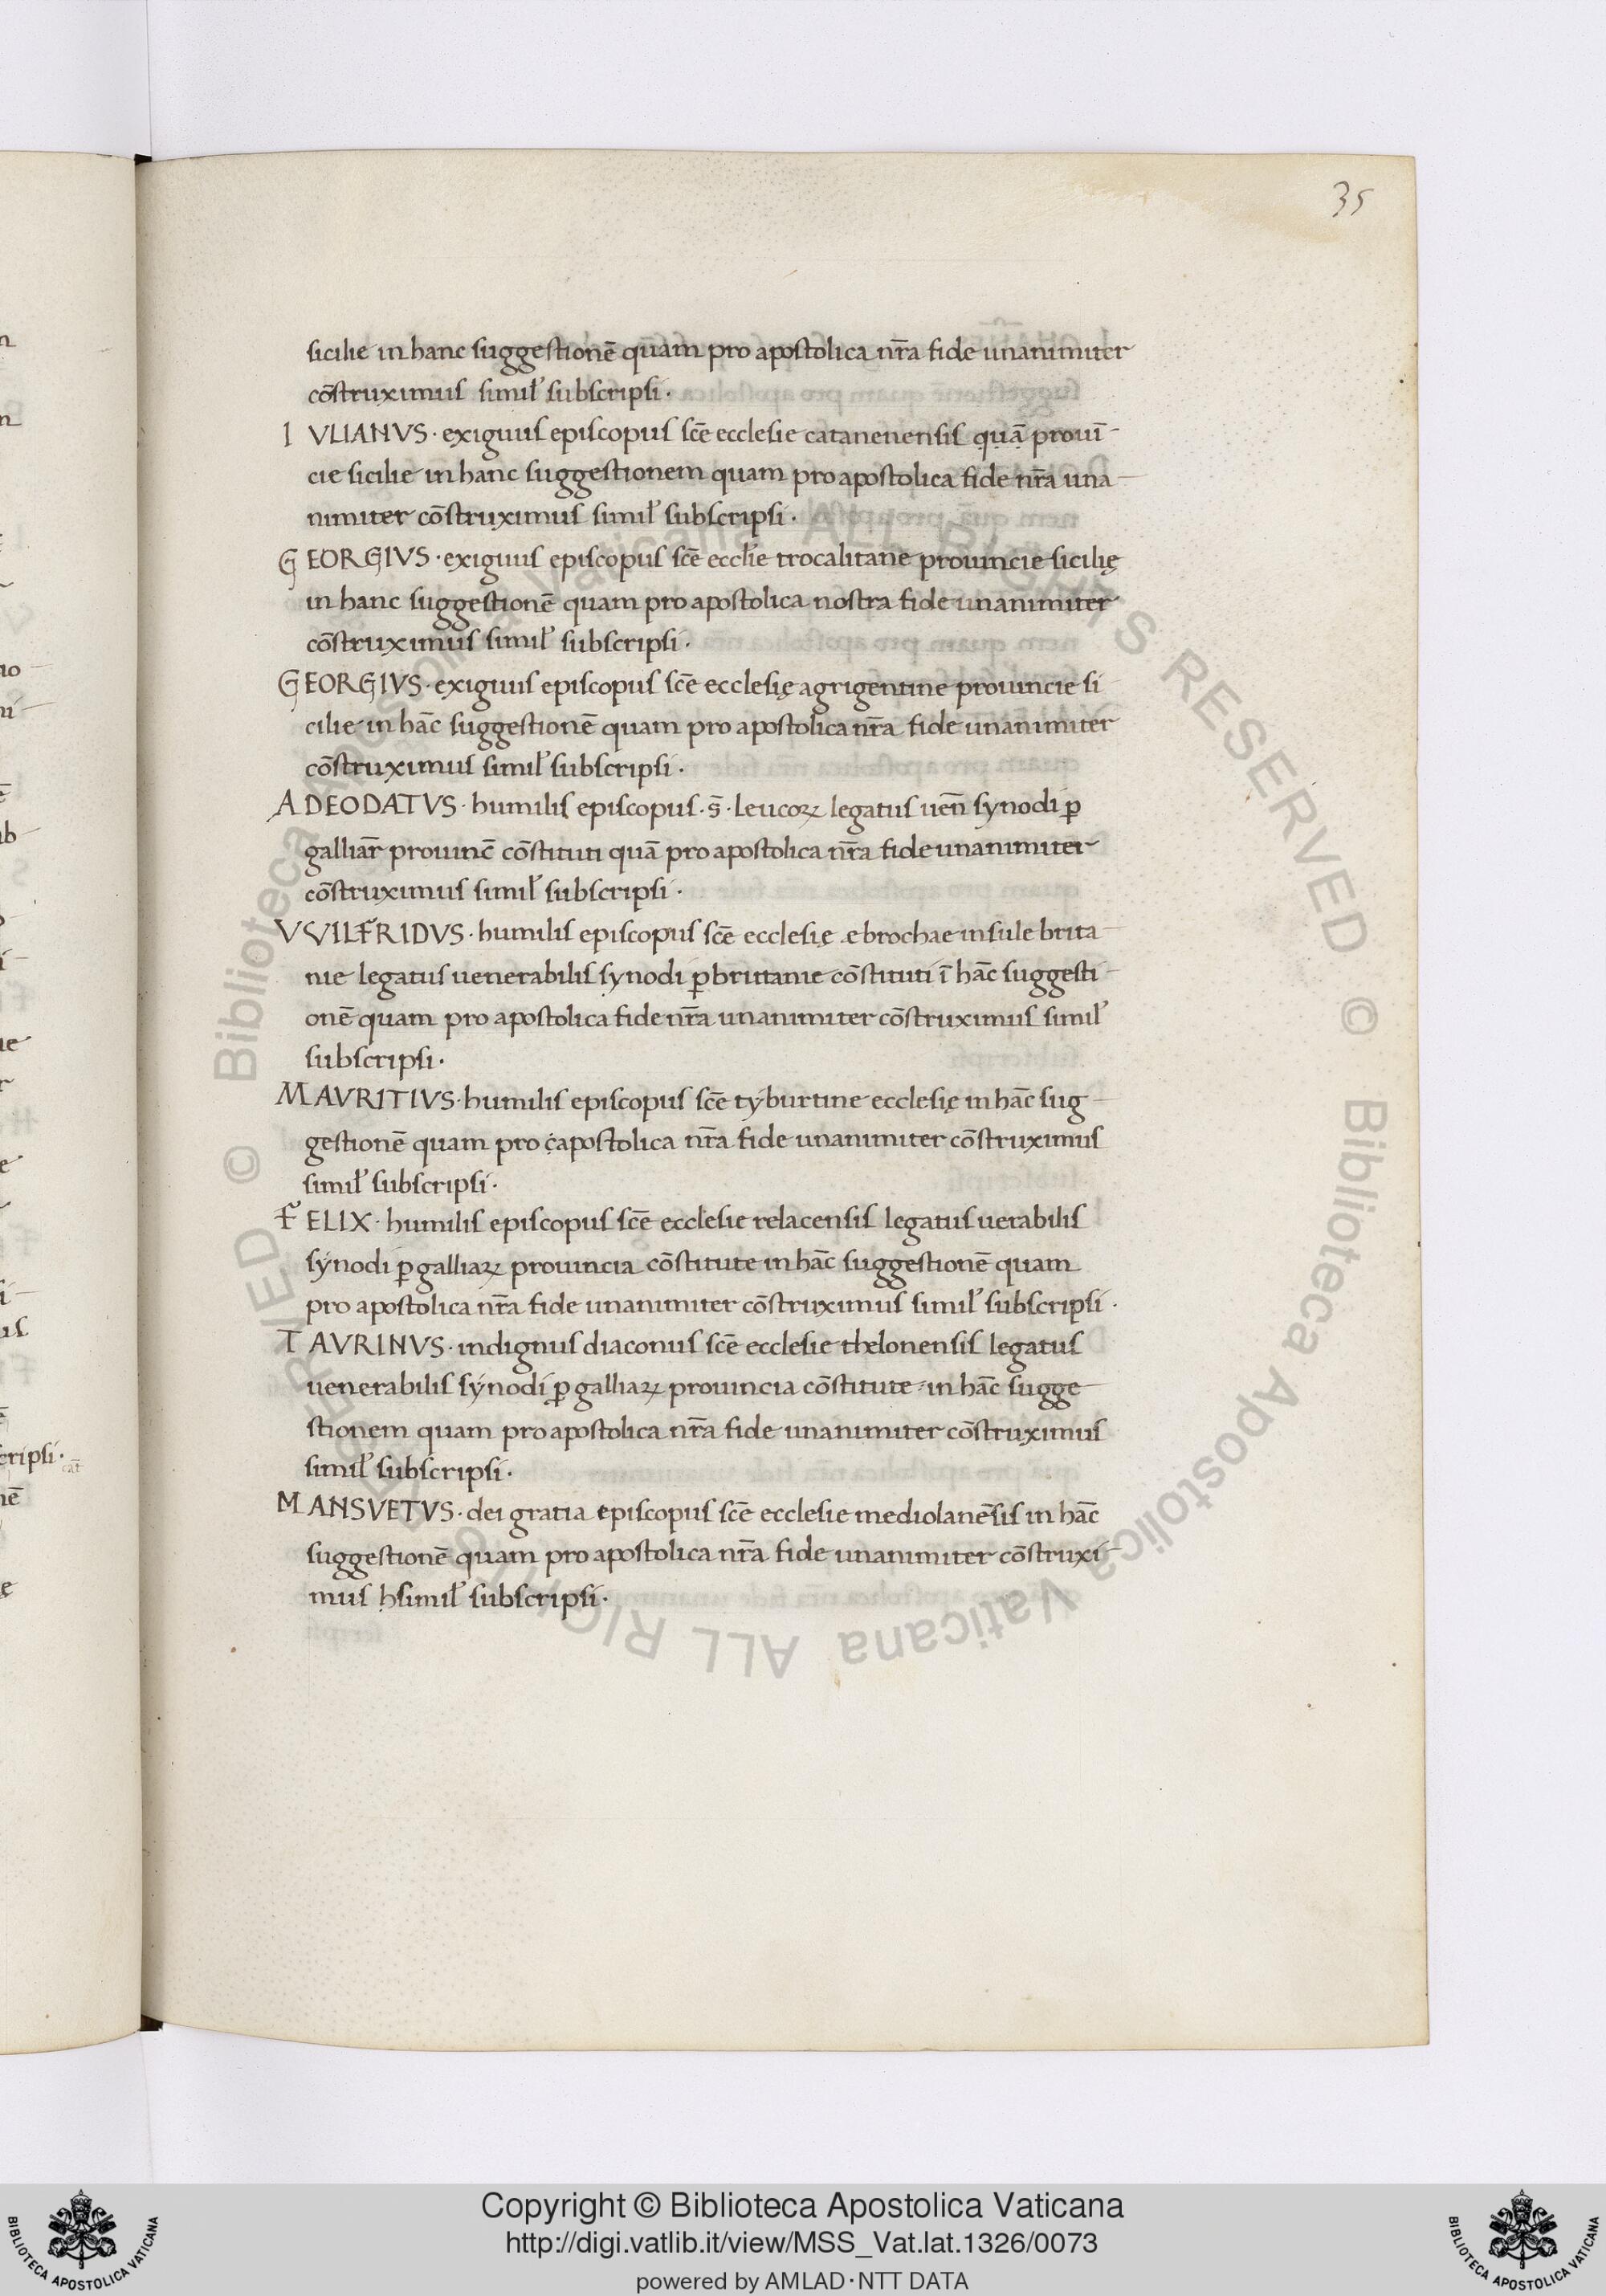 35
sicilie in hanc suggestionē quam pro apostolica nr̄a fide unanimiter
cōstruximus simil̓ subscripsi·
IVLIANVS· exiguus episcopus scē ecclesie catanenensis quā prouī
cie sicilie in hanc suggestionem quam pro apostolica fide nr̄a una
nimiter cōstruximus simil̓ subscripsi·
GEORGIVS· exiguus episcopus scē eccl̄ie trocalitane prouincie sicilię
in hanc suggestionē quam pro apostolica nostra fide unanimiter
cōstruximus simil̓ subscripsi·
GEORGIVS· exiguus episcopus scē ecclesię agrigentine prouincie si
cilie in hāc suggestionē quam pro apostolica nr̄a fide unanimiter
cōstruximus simil̓ subscripsi·
ADEODATVS· humilis episcopus· s̄· leucoꝝ legatus uen̄ synodi ꝑ
galliar̄ prouinc̄ cōstituti quā pro apostolica nr̄a fide unanimiter
cōstruximus simil̓ subscripsi·
VVILFRIDVS· humilis episcopus scē ecclesię ebrochae insule brita
nie legatus uenerabilis synodi ꝑ brittanie cōstituti ī hāc suggesti
onē quam pro apostolica fide nr̄a unanimiter cōstruximus simil̓
subscripsi·
MAVRITIVS· humilis episcopus scē tyburtine ecclesię in hāc sug
gestionē quam pro capostolica nr̄a fide unanimiter cōstruximus
simil̓ subscripsi·
FELIX· humilis episcopus scē ecclesie relacensis legatus uerabilis
synodi ꝑ galliaꝝ prouincia cōstitute in hāc suggestionē quam
pro apostolica nr̄a fide unanimiter cōstruximus simil̓ subscripsi·
TAVRINVS· indignus diaconus scē ecclesie thelonensis legatus
uenerabilis synodi ꝑ galliaꝝ prouincia cōstitute in hāc sugge
stionem quam pro apostolica nr̄a fide unanimiter cōstruximus
simil̓ subscripsi·
MANSVETVS· dei gratia episcopus scē ecclesie mediolanēsis in hāc
suggestionē quam pro apostolica nr̄a fide unanimiter cōstruxi
mus hsimil̓ subscripsi·
© Biblioteca Apostolica Vaticana ALL RIGHTS RESERVED © Biblioteca Apostolica Vaticana ALL RIGHTS RESERVED
Copyright © Biblioteca Apostolica Vaticana
http://digi.vatlib.it/view/MSS_Vat.lat.1326/0073
powered by AMLAD·NTT DATA
BIBLIOTECA APOSTOLICA VATICANA
BIBLIOTECA APOSTOLICA VATICANA